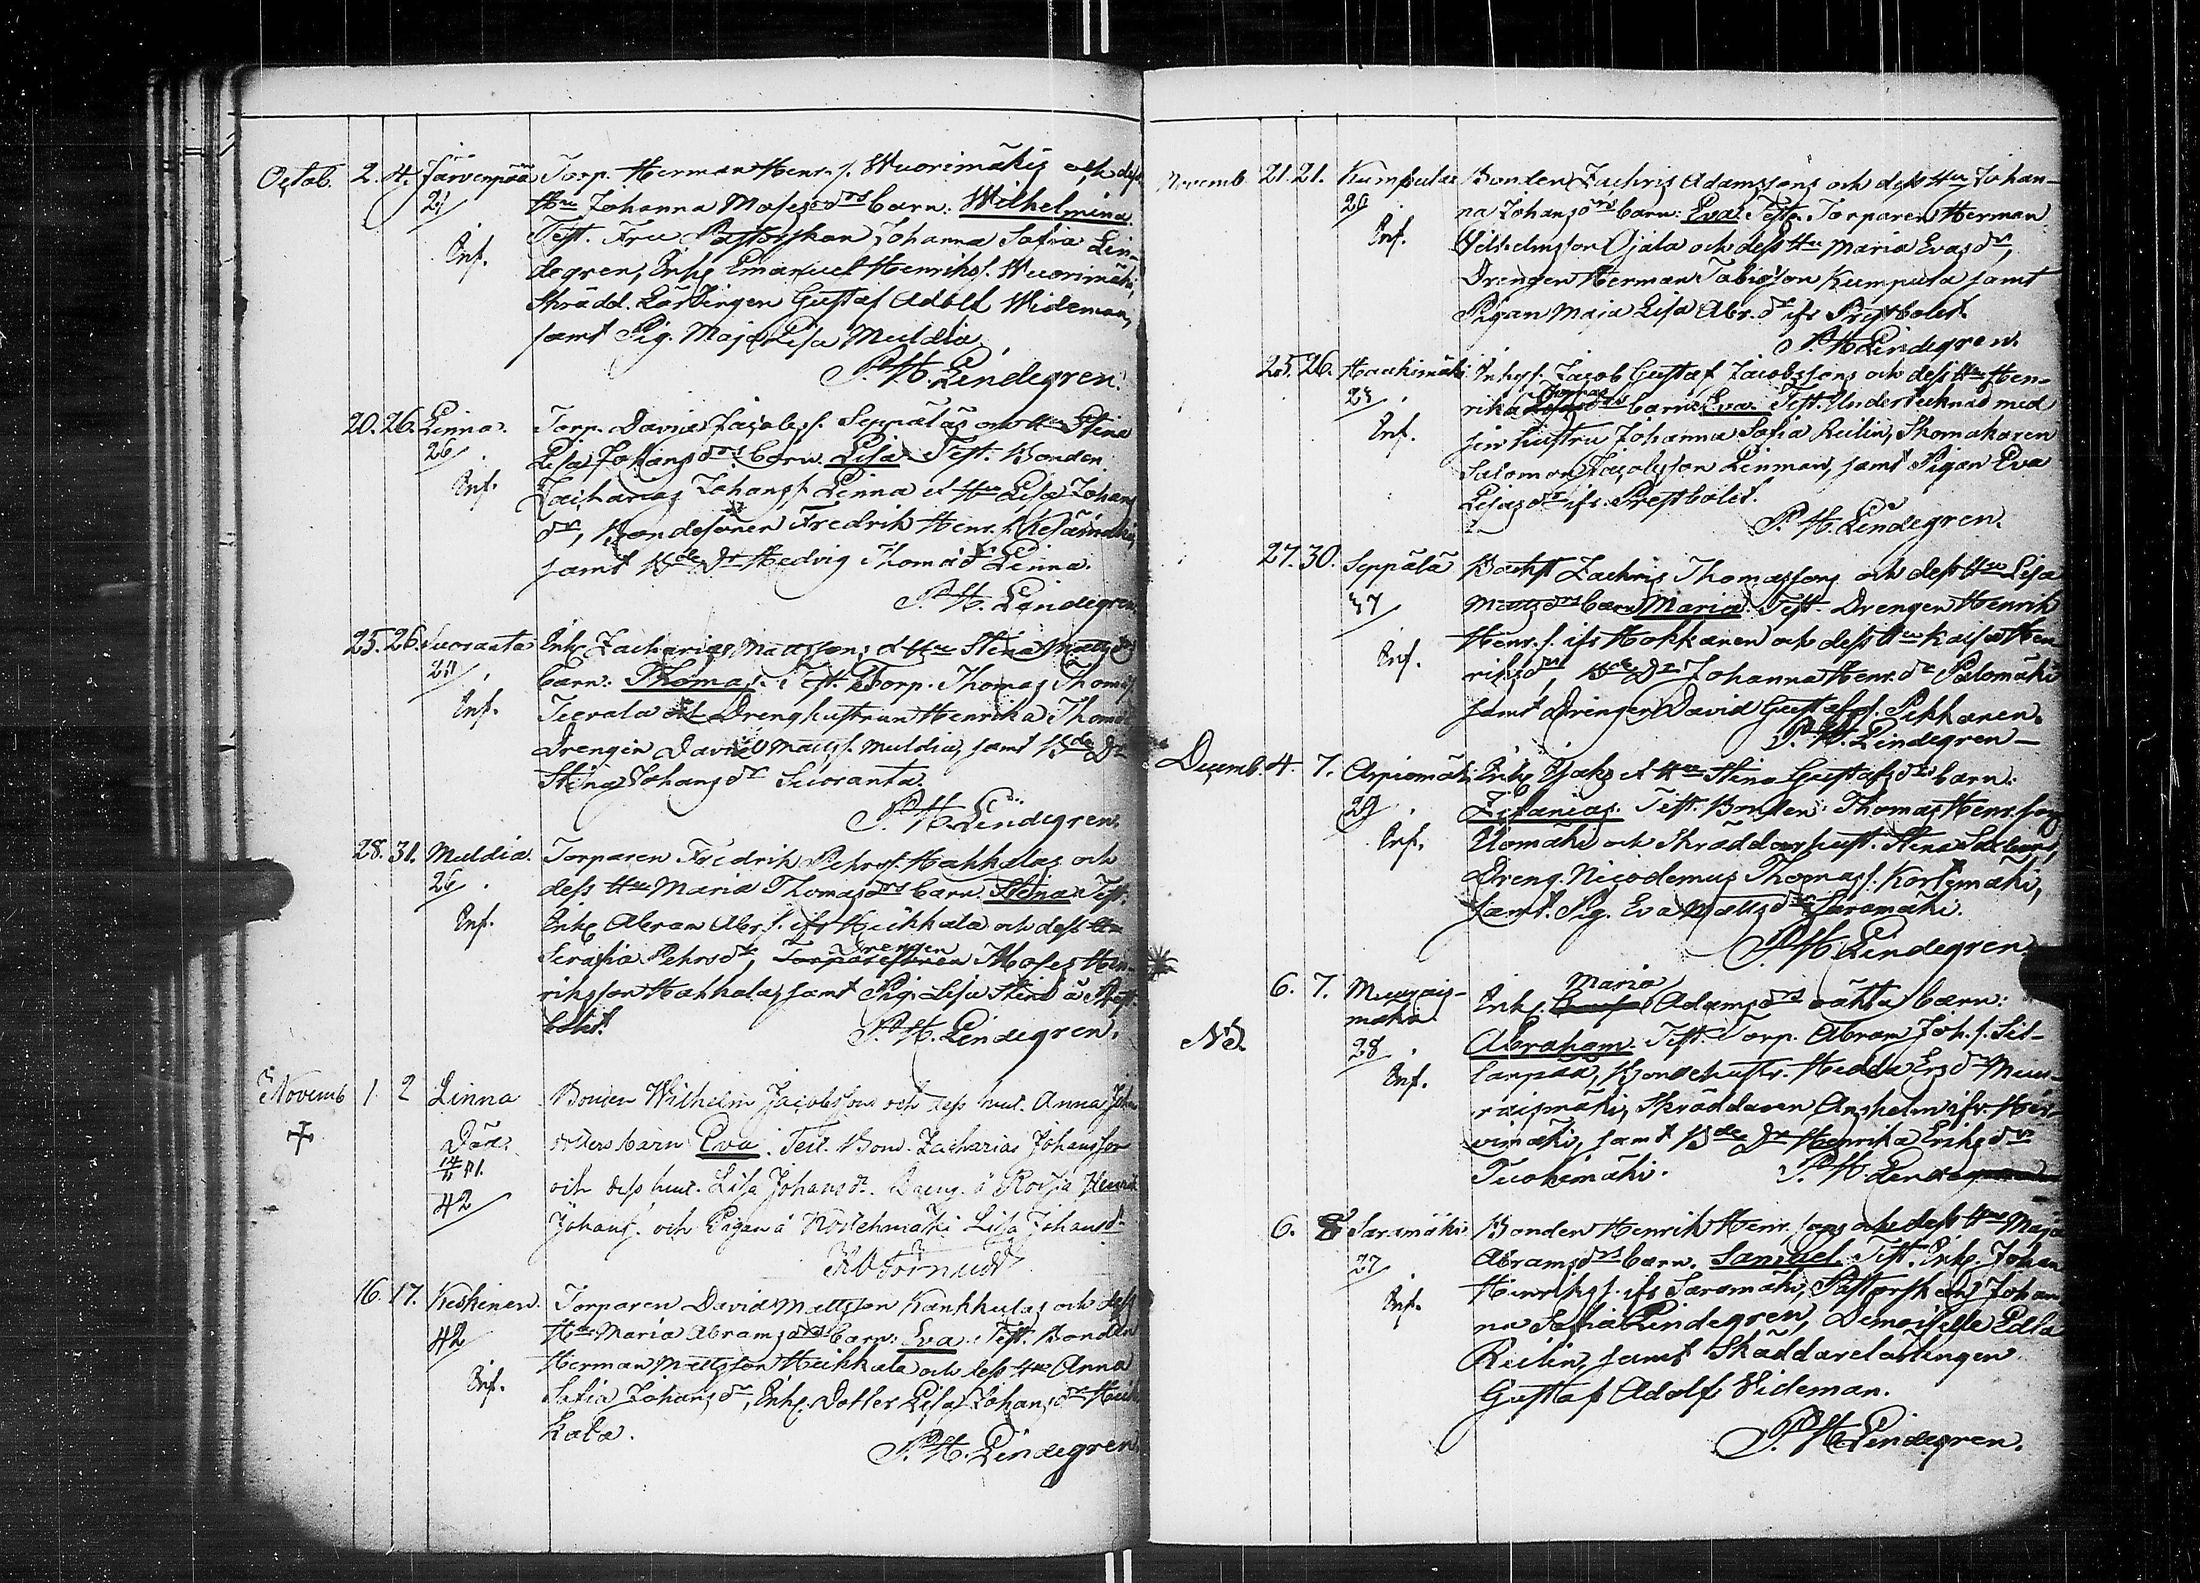 Octob. 2. 4. Järvenpää Torp. Herman Henr. s. Wuorimäkis och dess
21 Hu Johanna Mosesdrs barn: Wilhelmina.
Test. Fru Pastorskan Johanna Sofia Lin-
Inf. degren, Inhs Emanuel Henrikss. Wuorimäki,
Skrädd. Lärlingen Gustaf Adolf Wideman,
samt Pig. Maja Lisa Muldia.
P. H. Lindegren.
20. 26. Linna. Torp. David Jacobs s. Seppäläs och Hu Stina
26 Lisa Johansdrs barn. Lisa. Test. Bonden
Inf. Zacharias Johanss. Linna et Hu Lisa Johans
dr, Bondesonen Fredrik Henr. s. Kesämäki,
samt Bde Dr Hedvig Thomæ dr Linna.
P. H. Lindegren.
25. 26. Suoranta Inhs Zacharias Mattssons et Hu Stina Mattsdrs
21 barn: Thomas. Test. Torp. Thomas Thomass
Inf. Teerala och Dränghustrun Henrika Thoms
Drengen David Mattss. Muldia, samt Bde Dr
Stina Johansdr Suoranta.
P. H. Lindegren.
28. 31. Muldia. Torparen Fredrik Pehrss. Hahkalas och
26 dess Hu Maria Thomasdrs barn. Stina. Test.
Inf. Inhs Abram Abr. s. ifr Heikkala och dess Hu
Serafia Pehrsdr, Drengen
Torparesonen Moses Hen-
riksson Hahkala, samt Pig. Lisa Stina å Prest-
bolet. P. H. Lindegren.
Novemb 1. 2 Linna Bonden Wilhelm Jacobssons och dess hust. Anna Johans
+ Död dotters barn Eva. Test. Bond. Zacharias Johansson
42 och dess hust. Lisa Johansdr. Dreng. å Henrik
Johanss. och Pigan å Lisa Johansdr
Törnudd
16. 17. Keskinen. Torparen David Mattsson Kankkulas och dess
42 Hu Maria Abramsdrs barn: Eva. Test. Bonden
Inf. Herman Mattsson Heikkala och dess Hu Anna
Sofia Johansdr, Inhs Dotter Lisa Johansdr Heik
kala.
P. H. Lindegren.
Novemb. 21. 21. Kumpula Bonden Zachris Adamssons och dess Hu Johan-
20 na Johansdrs barn: Eva. Test. Torparen Herman
Inf. Vilhelmsson Ojala och dess Hu Maria Evasdr,
Drengen Herman Tobiesson Kumpula samt
Pigan Maja Lisa Abr. dr ifr Prestbolet.
P. H. Lindegren.
25. 26. Haukimäki Inhys. Jacob Gustaf Jacobssons och dess Hu Hen-
23 rika Thomædrs barn: Eva. Test. Undertecknad med
Inf. sin hustru Johanna Sofia Relin, Skomakaren
Salomon Jacobsson Linman, samt Pigan Eva
Lisasdr ifr. Prestbolet.
P. H. Lindegren.
27. 30. Seppälä Backst Zachris Thomassons och dess Hu Lisa
37 Mattsdrs barn Maria. Test. Drengen Henrik
Inf. Henr. s. ifr Hokkanen och dess Hu Kaisa Hen
riksdr, Bde Dr Johanna Henr. dr Palomäki
samt Drengen David Gustafss. Pikkanen.
P. H. Lindegren
Decemb. 4. 7. Arpiomäki Inhs Isaks et Hu Stina Gustafsdrs barn:
29 Zefanias. Test. Bonden Thomas Henr. son
Inf. Uomäki och Skräddarhust. Stina Saxlund,
Dreng. Nicodemus Thomass. Kortemäki,
samt. Pig. Eva Mattsdr Saramäki.
P. H. Lindegren.
6. 7. Muurais- Maria
mäki Inhs Adamsdrs oäkta barn:
NB. 28 Abraham. Test. Torp. Abram Joh. s. Sil-
Inf. lanpää, Bondehustr. Hedda Ersdr Muu-
raismäki, Skräddaren Anshelm ifr. Hir-
vimäki, samt Bde Dr Henrika Eriksdr
Tuohimäki. P. H. Lindegren
6. 8 Saramäki Bonden Henrik Henr. sons och dess Hu Maja
27 Abramsdrs barn. Samuel. Test. Inhs. Johan
Inf. Henrikss. ifr Saramäki, Pastorskan Johan
na Sofia Lindegren, Demoiselle Edla
Relin, samt Skräddarelärlingen
Gustaf Adolf Wideman.
P. H. Lindegren.